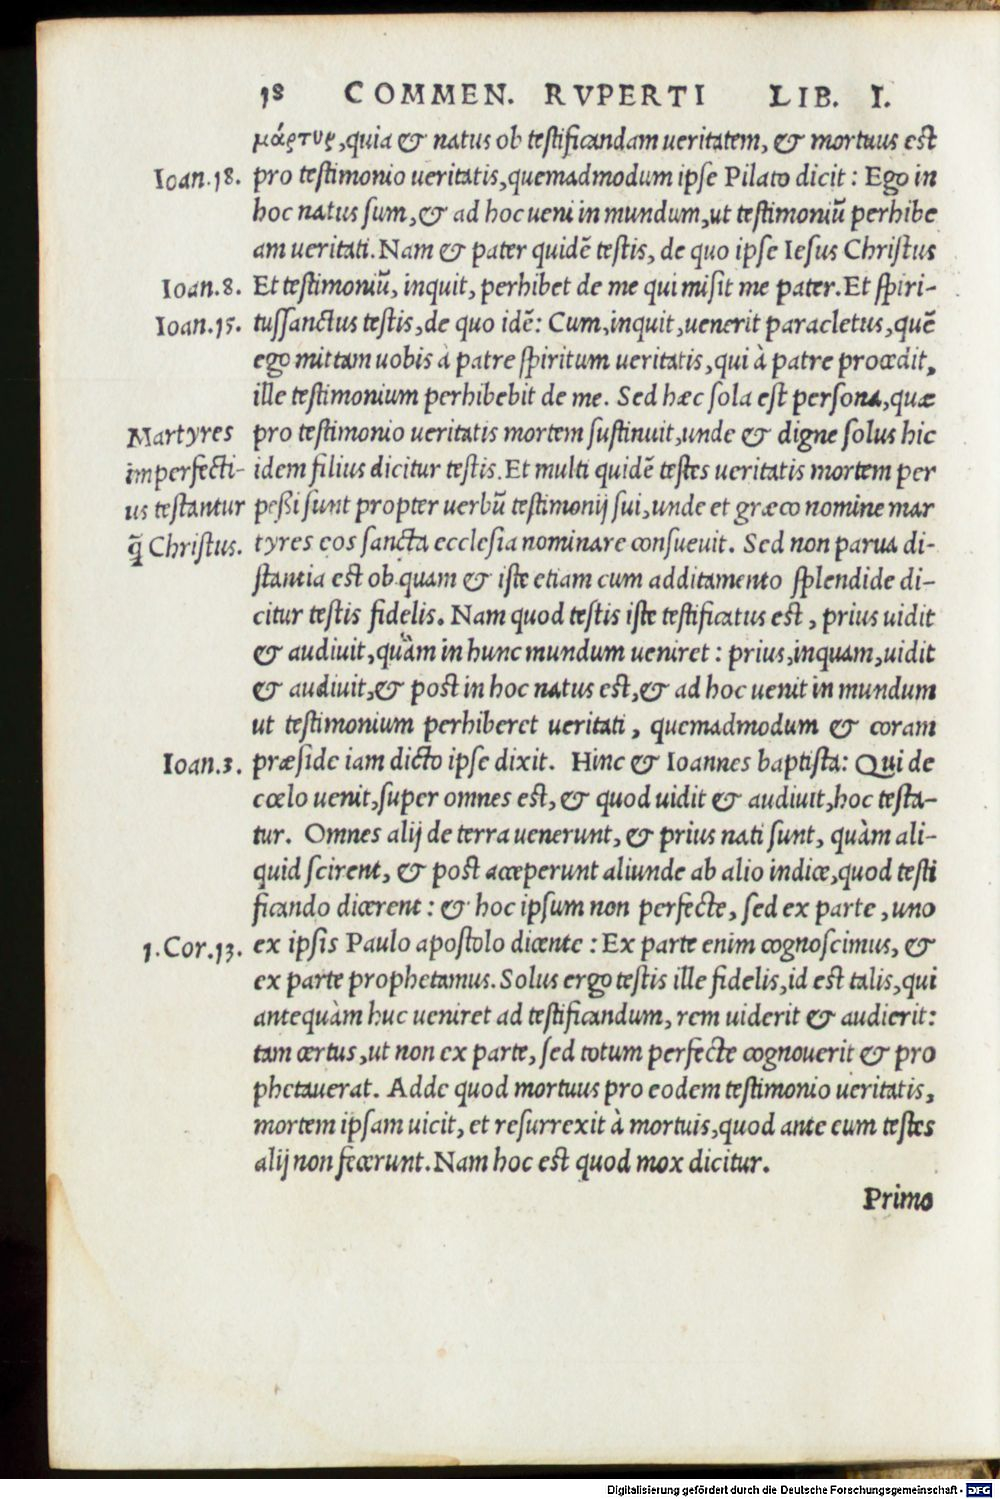 18 COMMEN. RVPERTI LIB. I.
μάρτυρ, quia & natus ob testificandam ueritatem, & mortuus est
Ioan.18. pro testimonio ueritatis, quemadmodum ipse Pilato dicit: Ego in
hoc natus sum, & ad hoc ueni in mundum, ut testimoniũ perhibe
am ueritati. Nam & pater quidẽ testis, de quo ipse Iesus Christus
Ioan.8. Et testimoniũ, inquit, perhibet de me qui misit me pater. Et spiri-
Ioan.15. tussanctus testis, de quo idẽ: Cum, inquit, uenerit paracletus, quẽ
ego mittam uobis à patre spiritum ueritatis, qui à patre procedit,
ille testimonium perhibebit de me. Sed hæc sola est persona, quæ
Martyres pro testimonio ueritatis mortem sustinuit, unde & digne solus hic
imperfecti- idem filius dicitur testis. Et multi quidẽ testes ueritatis mortem per
us testantur peßi sunt propter uerbũ testimonij sui, unde et græco nomine mar
q̃ Christus. tyres eos sancta ecclesia nominare consueuit. Sed non parua di-
stantia est ob quam & iste etiam cum additamento splendide di-
citur testis fidelis. Nam quod testis iste testificatus est, prius uidit
& audiuit, quàm in hunc mundum ueniret: prius, inquam, uidit
& audiuit, & post in hoc natus est, & ad hoc uenit in mundum
ut testimonium perhiberet ueritati, quemadmodum & coram
Ioan.3. præside iam dicto ipse dixit. Hinc & Ioannes baptista: Qui de
cœlo uenit, super omnes est, & quod uidit & audiuit, hoc testa-
tur. Omnes alij de terra uenerunt, & prius nati sunt, quàm ali-
quid scirent, & post acceperunt aliunde ab alio indice, quod testi
ficando dicerent: & hoc ipsum non perfecte, sed ex parte, uno
1.Cor.13. ex ipsis Paulo apostolo dicente: Ex parte enim cognoscimus, &
ex parte prophetamus. Solus ergo testis ille fidelis, id est talis, qui
antequàm huc ueniret ad testificandum, rem uiderit & audierit:
tam certus, ut non ex parte, sed totum perfecte cognouerit & pro
phetauerat. Adde quod mortuus pro eodem testimonio ueritatis,
mortem ipsam uicit, et resurrexit à mortuis, quod ante eum testes
alij non fecerunt. Nam hoc est quod mox dicitur.
Primo
Digitalisierung gefördert durch die Deutsche Forschungsgemeinschaft - DFG